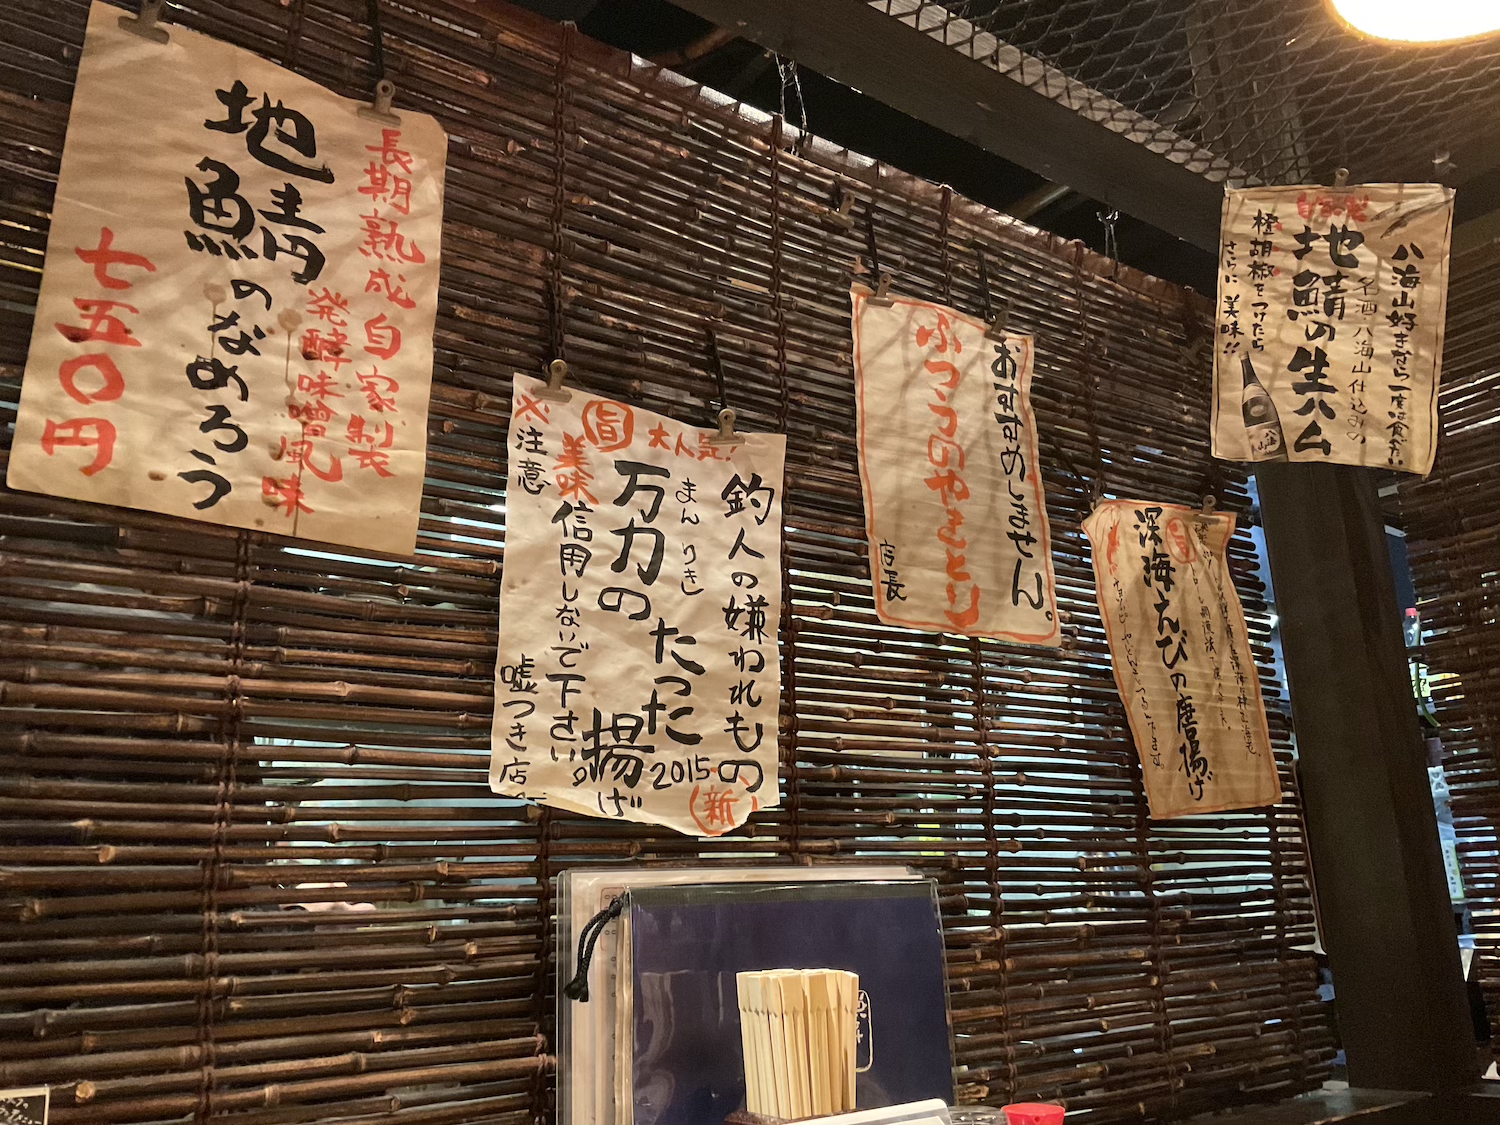 長期熟成自家製
発酵味噌風味
地鯖のなめろう
七五〇円
釣人の嫌われもの
まんりき
万力のたった揚げ
2015
新
大人気!
旨
美味
信用しないで下さい。
※注意
嘘つき店
おすすめしません。
ふつうのやきとり
店長
旨
深海えびの唐揚げ
八海山好きなら一度は食べたい
名酒・八海山仕込みの
自家製
地鯖の生ハム
橙胡椒をつけたら
さらに美味!!